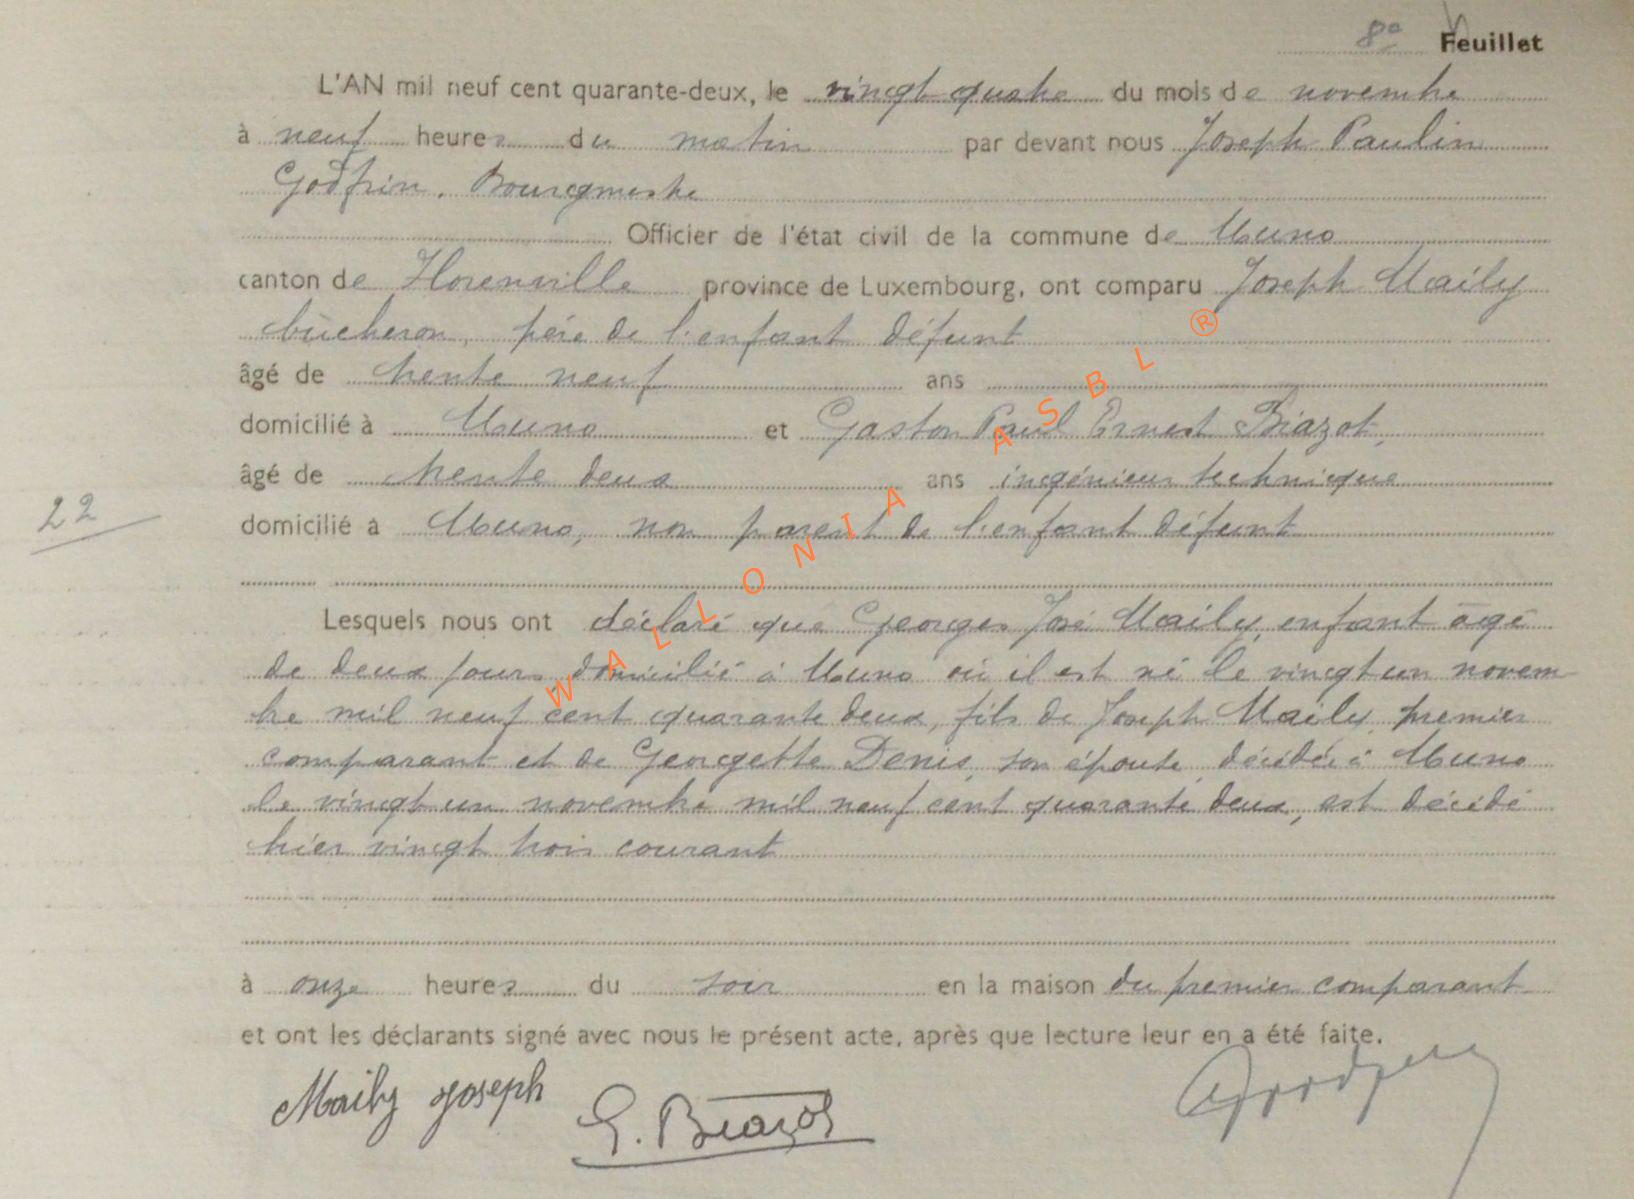 8e Feuillet
L'AN mil neuf cent quarante-deux, le vingt quatre du mois de novembre
à neuf heures du matin par devant nous Joseph Paulin
Godfrin, Bourgmestre
Officier de l'état civil de la commune de Muno
canton de Florenville province de Luxembourg, ont comparu Joseph Maily
bûcheron, père de l'enfant défunt
âgé de trente neuf ans
domicilié à Muno et Gaston Paul Ernest Biazot,
âgé de trente deux ans ingénieur technique
22
domicilié à Muno, non parent de l'enfant défunt
Lesquels nous ont déclaré que Georges José Maily, enfant âgé
de deux jours, domicilié à Muno où il est né le vingt un novem
bre mil neuf cent quarante deux, fils de Joseph Maily, premier
comparant et de Georgette Denis, son épouse, décédée à Muno
le vingt un novembre mil neuf cent quarante deux, est décédé
hier vingt trois courant
à onze heures du soir en la maison du premier comparant
et ont les déclarants signé avec nous le présent acte, après que lecture leur en a été faite.
Maily Joseph G. Biazot
WALLONIA ASBL ®